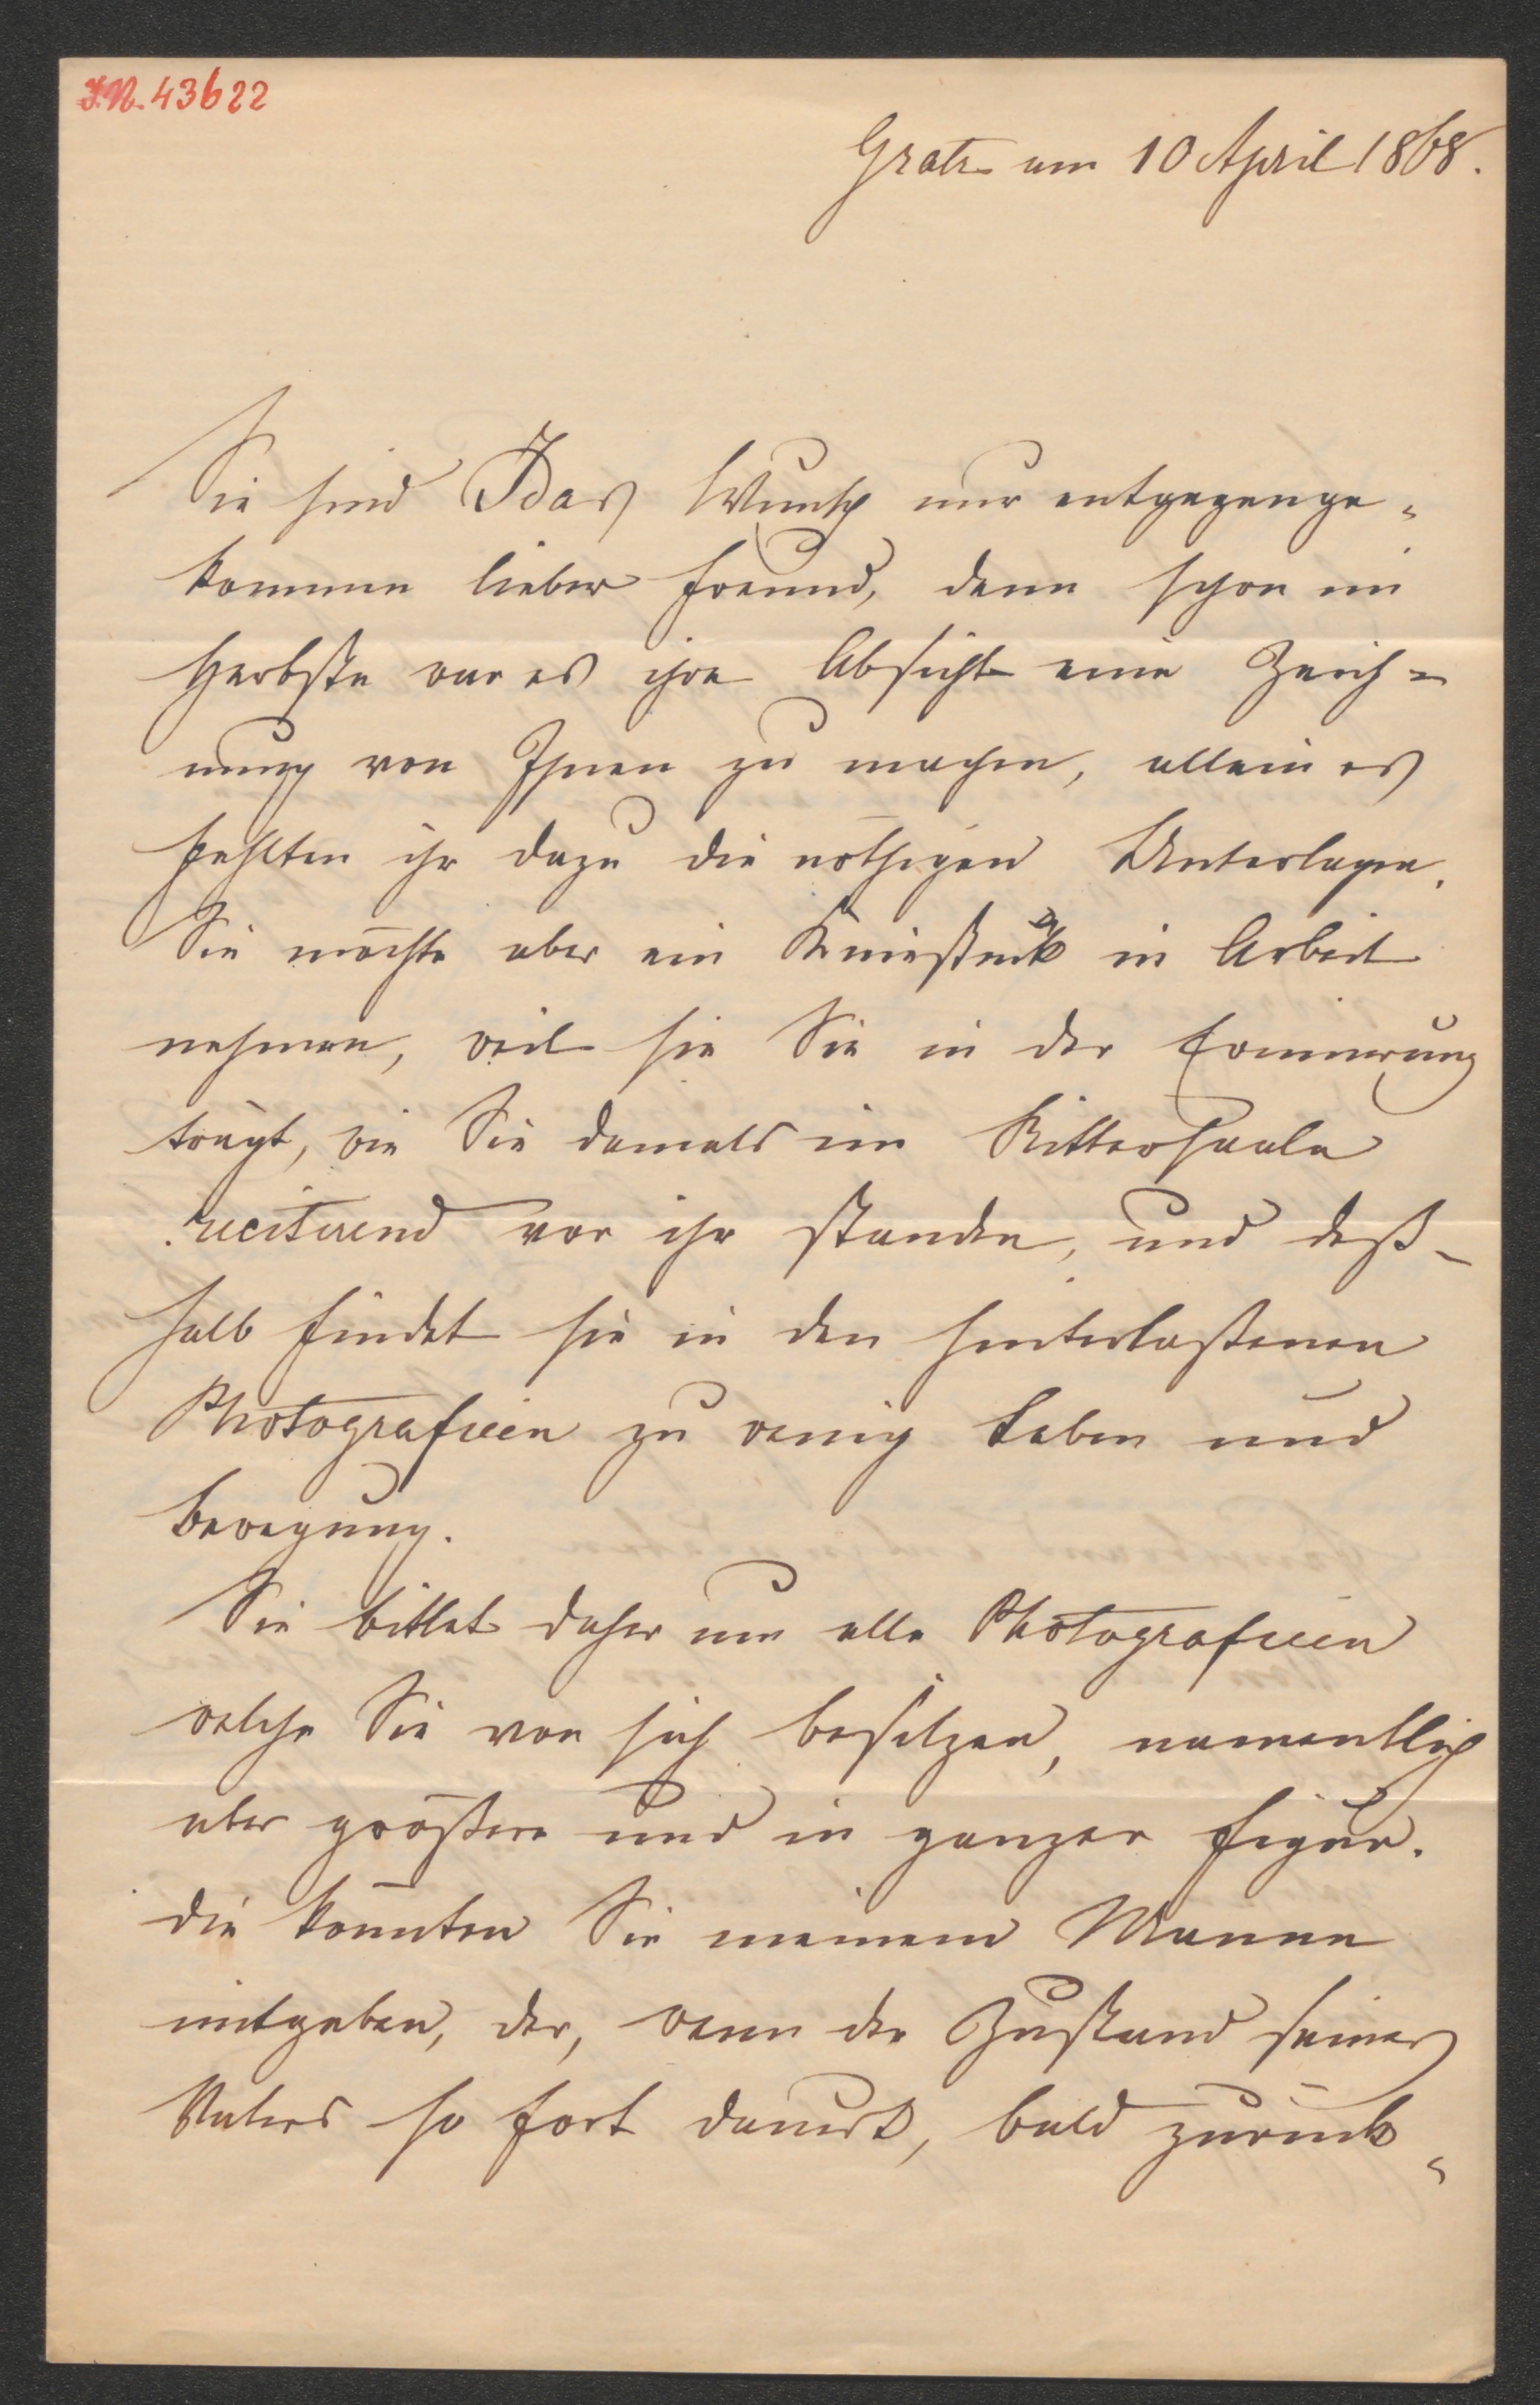 I.N. 43622
Gratz am 10 April 1868.
Sie sind Idas Wunsch nur entgegenge-
kommen lieber Freund, denn schon im
Herbste war es ihre Absicht eine Zeich=
nung von Ihnen zu machen, allein es
fehlten ihr dazu die nöthigen Unterlagen.
Sie möchte aber ein Kniestück in Arbeit
nehmen, weil sie Sie in der Erinnerung
trägt, wie Sie damals im Rittersaale
recitirend vor ihr standen, und deß-
halb findet sie in den hinterlaßenen
Photografieen zu wenig Leben und
Bewegung.
Sie bittet daher um alle Photografieen
welche Sie von sich besitzen, namentlich
aber größere und in ganzer Figur.
Die könnten Sie meinem Manne
mitgeben, der, wenn der Zustand seines
Vaters so fort dauert, bald zurück-